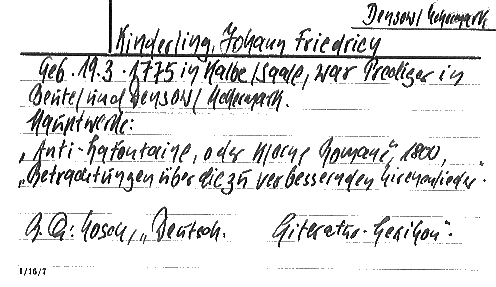 Densow/Uckermark
Kinderling, Johann Friedrich
Geb. 19.3.1775 in Kalbe/Saale, war Prediger in
Beutel und Densow/Uckermark.
Hauptwerke:
„Anti-Lafontaine, oder kleine Romane", 1800,
„Betrachtungen über die zu verbessernden Kirchenlieder".
Kosch, „Deutsch. Literatur-Lexikon".
1/16/7